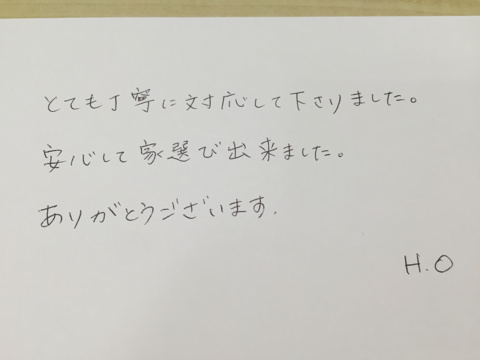 とても丁寧に対応して下さりました。
安心して家選び出来ました。
ありがとうございます.
H.O